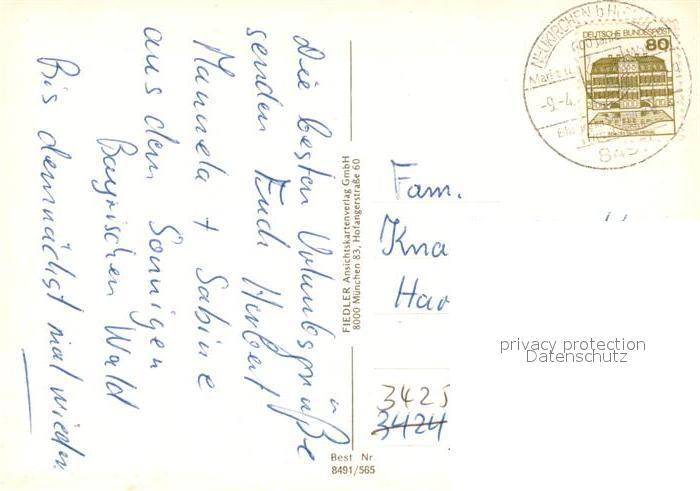 Die besten Urlaubsgrüße
senden Euch Herbert
Manuela + Sabine
aus dem Sonnigen
Bayrischen Wald
Bis demnächst mal wieder
FIEDLER Ansichtskartenverlag GmbH
8000 München 83, Hofangerstraße 60
Best Nr.
8491/565
NEUKIRCHEN b
Markt
-9.-4.
DEUTSCHE BUNDESPOST
80
Fam.
Kna
Har
3425
3424
privacy protection
Datenschutz